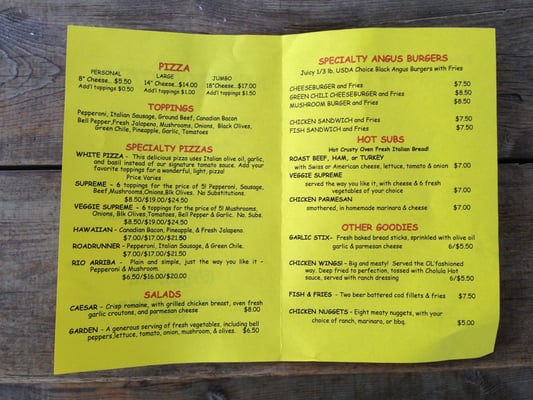 PIZZA
PERSONAL LARGE JUMBO
8" Cheese... $5.50 14" Cheese...$14.00 18"Cheese...$17.00
Add'l toppings $.50 Add'l toppings $1.00 Add'l toppings $1.50
TOPPINGS
Pepperoni, Italian Sausage, Ground Beef, Canadian Bacon
Bell Pepper,Fresh Jalapeno, Mushrooms, Onions, Black Olives,
Green Chile, Pineapple, Garlic, Tomatoes
SPECIALTY PIZZAS
WHITE PIZZA - This delicious pizza uses Italian olive oil, garlic,
and basil instead of our signature tomato sauce. Add your
favorite toppings for a wonderful, light, pizza!
Price Varies
SUPREME - 6 toppings for the price of 5! Pepperoni, Sausage,
Beef,Mushrooms,Onions,Blk Olives. No Substitutions.
$8.50/$19.00/$24.50
VEGGIE SUPREME - 6 toppings for the price of 5! Mushrooms,
Onions, Blk Olives,Tomatoes, Bell Pepper & Garlic. No. Subs.
$8.50/$19.00/$24.50
HAWAIIAN - Canadian Bacon, Pineapple, & Fresh Jalapeno.
$7.00/$17.00/$21.50
ROADRUNNER - Pepperoni, Italian Sausage, & Green Chile.
$7.00/$17.00/$21.50
RIO ARRIBA - Plain and simple, just the way you like it -
Pepperoni & Mushroom.
$6.50/$16.00/$20.00
SALADS
CAESAR - Crisp romaine, with grilled chicken breast, oven fresh
garlic croutons, and parmesan cheese $8.00
GARDEN - A generous serving of fresh vegetables, including bell
peppers,lettuce, tomato, onion, mushroom, & olives. $6.50
SPECIALTY ANGUS BURGERS
Juicy 1/3 lb. USDA Choice Black Angus Burgers with Fries
CHEESEBURGER and Fries $7.50
GREEN CHILI CHEESEBURGER and Fries $8.50
MUSHROOM BURGER and Fries $8.50
CHICKEN SANDWICH and Fries $7.50
FISH SANDWICH and Fries $7.50
HOT SUBS
Hot Crusty Oven Fresh Italian Bread!
ROAST BEEF, HAM, or TURKEY
with Swiss or American cheese, lettuce, tomato & onion $7.00
VEGGIE SUPREME
served the way you like it, with cheese & 6 fresh
vegetables of your choice $7.00
CHICKEN PARMESAN
smothered, in homemade marinara & cheese $7.00
OTHER GOODIES
GARLIC STIX- Fresh baked bread sticks, sprinkled with olive oil
garlic & parmesan cheese 6/$5.50
CHICKEN WINGS! - Big and meaty! Served the OL'fashioned
way. Deep fried to perfection, tossed with Cholula Hot
sauce, served with ranch dressing 6/$5.50
FISH & FRIES - Two beer battered cod fillets & fries $7.50
CHICKEN NUGGETS - Eight meaty nuggets, with your
choice of ranch, marinara, or bbq. $5.00